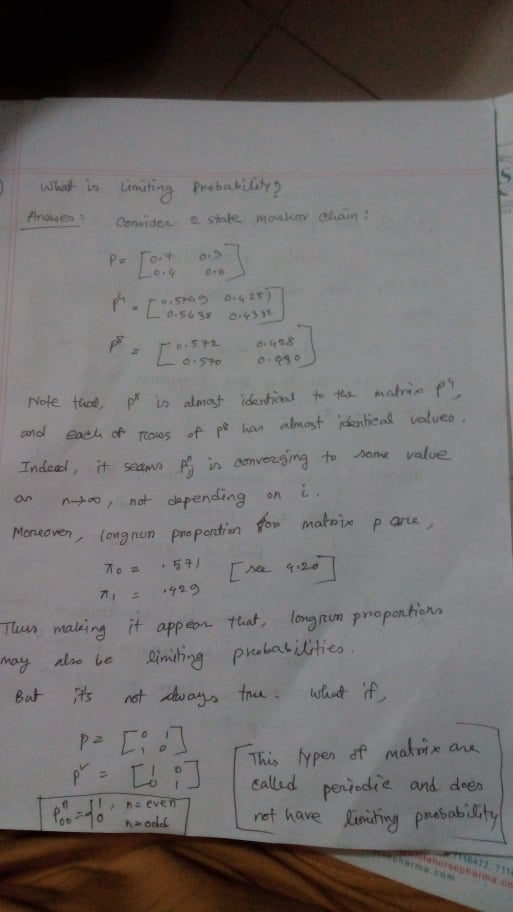 What is Limiting Probability?
Answer: Consider 2 state markov chain:
P = [0.7 0.3
0.4 0.6]
P⁴ = [0.5749 0.4251
0.5638 0.4332]
P⁸ = [0.572 0.428
0.570 0.430]
Note that, P⁸ is almost identical to the matrix P⁴,
and each of rows of P⁸ has almost identical values.
Indeed, it seams Pⁿij is converging to some value
as n→∞, not depending on i.
Moreover, longrun proportion for matrix P are,
π₀ = .571 [see 4.20]
π₁ = .429
Thus making it appear that, longrun proportions
may also be limiting probabilities.
But its not always true. What if,
P = [0 1
1 0]
P² = [1 0
0 1]
Pⁿ₀₀ = {1, n=even
0 n=odd
[This types of matrix are
called periodic and does
not have limiting probability]
716472, 711
tehorsepharma.co
rsepharma.com